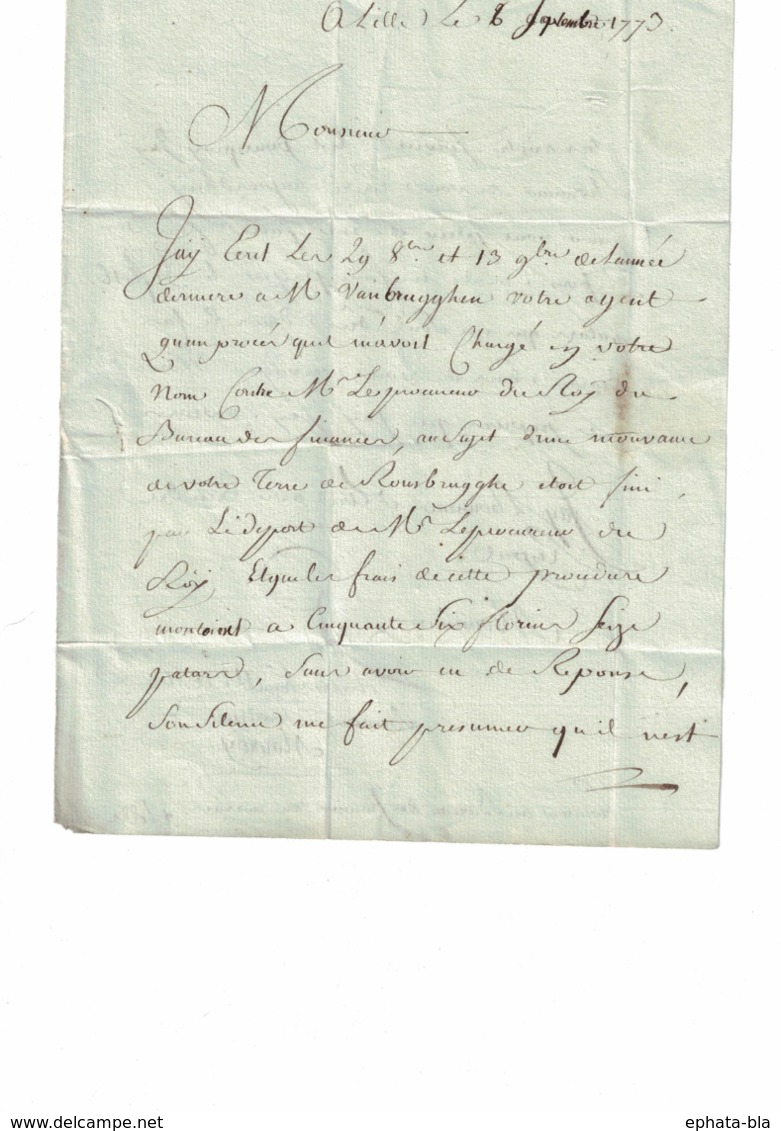 A Lille Le 8 septembre 1773.
Monsieur
Jay Ecrit Les 29 8bre et 13 9bre de Lannée
derniere a Mr Vanbrugghen votre agent
Quun procès quil mavoit Chargé en votre
Nom Contre Mr Le procureur du Roy du
Bureau des finances, au sujet dune mouvance
de votre Terre de Rousbrugghe etoit fini
par Le deport de Mr Le procureur du
Roy Et que les frais de cette procedure
montoient a Cinquante Six florins Seize
patars, Sans avoir eu de Reponse,
Son Silence me fait presumer qu'il nest
ephata-bla